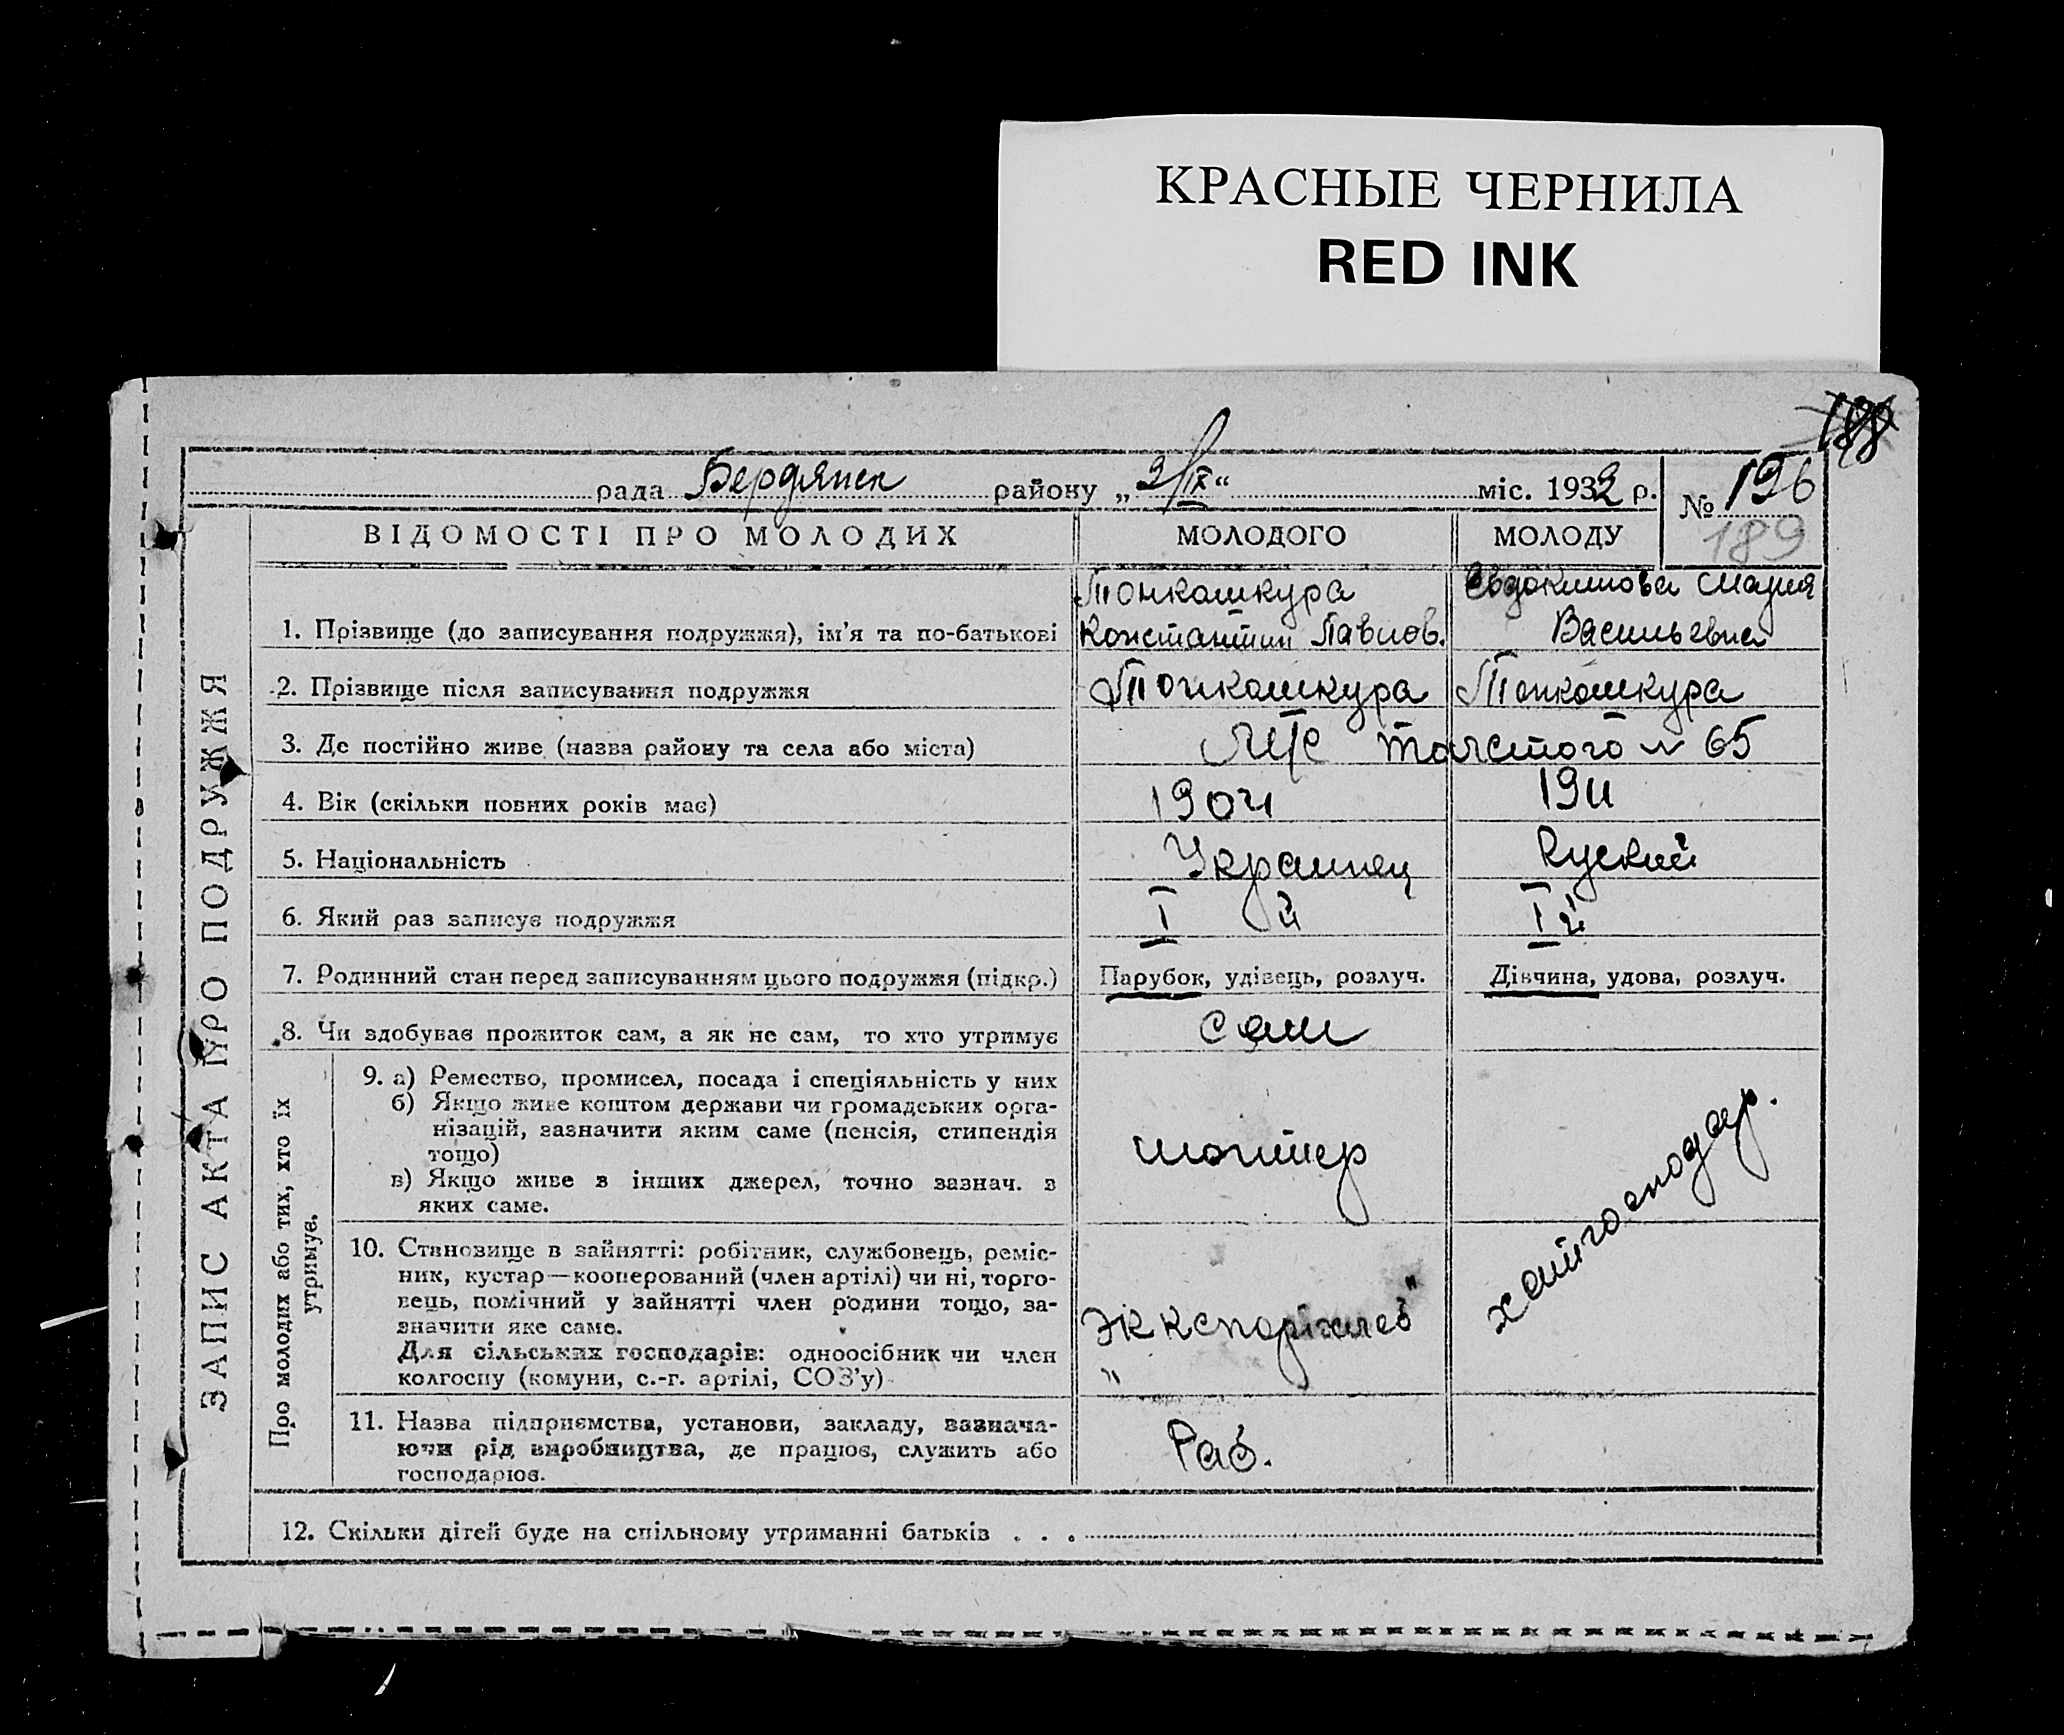 КРАСНЫЕ ЧЕРНИЛА
RED INK
рада Бердянск району „ 2/IX “ міс. 1932 р.
№ 196
189
ЗАПИС АКТА ПРО ПОДРУЖЖЯ
ВІДОМОСТІ ПРО МОЛОДИХ МОЛОДОГО МОЛОДУ
Тонкошкура Евдокимова Мария
1. Прізвище (до записування подружжя), ім’я та по-батькові Константин Павлов. Васильевна
2. Прізвище після записування подружжя Тонкошкура Тонкошкура
3. Де постійно живе (назва району та села або міста) Толстого № 65
4. Вік (скільки повних років має) 1904 1911
5. Національність Украинец Руский
6. Який раз записує подружжя I й I й
7. Родинний стан перед записуванням цього подружжя (підкр.) Парубок, удівець, розлуч. Дівчина, удова, розлуч.
8. Чи здобуває прожиток сам, а як не сам, то хто утримує сам
Про молодих або тих, хто їх утримує.
9. а) Ремество, промисел, посада і спеціяльність у них
б) Якщо живе коштом держави чи громадських орга-
нізацій, зазначити яким саме (пенсія, стипендія
тощо)
в) Якщо живе з інших джерел, точно зазнач. з
яких саме.
монтер
хатгосподар.
10. Становище в зайнятті: робітник, службовець, реміс-
ник, кустар—кооперований (член артілі) чи ні, торго-
вець, помічний у зайнятті член родини тощо, за-
значити яке саме.
Для сільських господарів: одноосібник чи член
колгоспу (комуни, с.-г. артілі, СОЗ’у)
11. Назва підприємства, установи, закладу, зазнача-
ючи рід виробництва, де працює, служить або
господарює.
Раб.
12. Скільки дітей буде на спільному утриманні батьків . . .